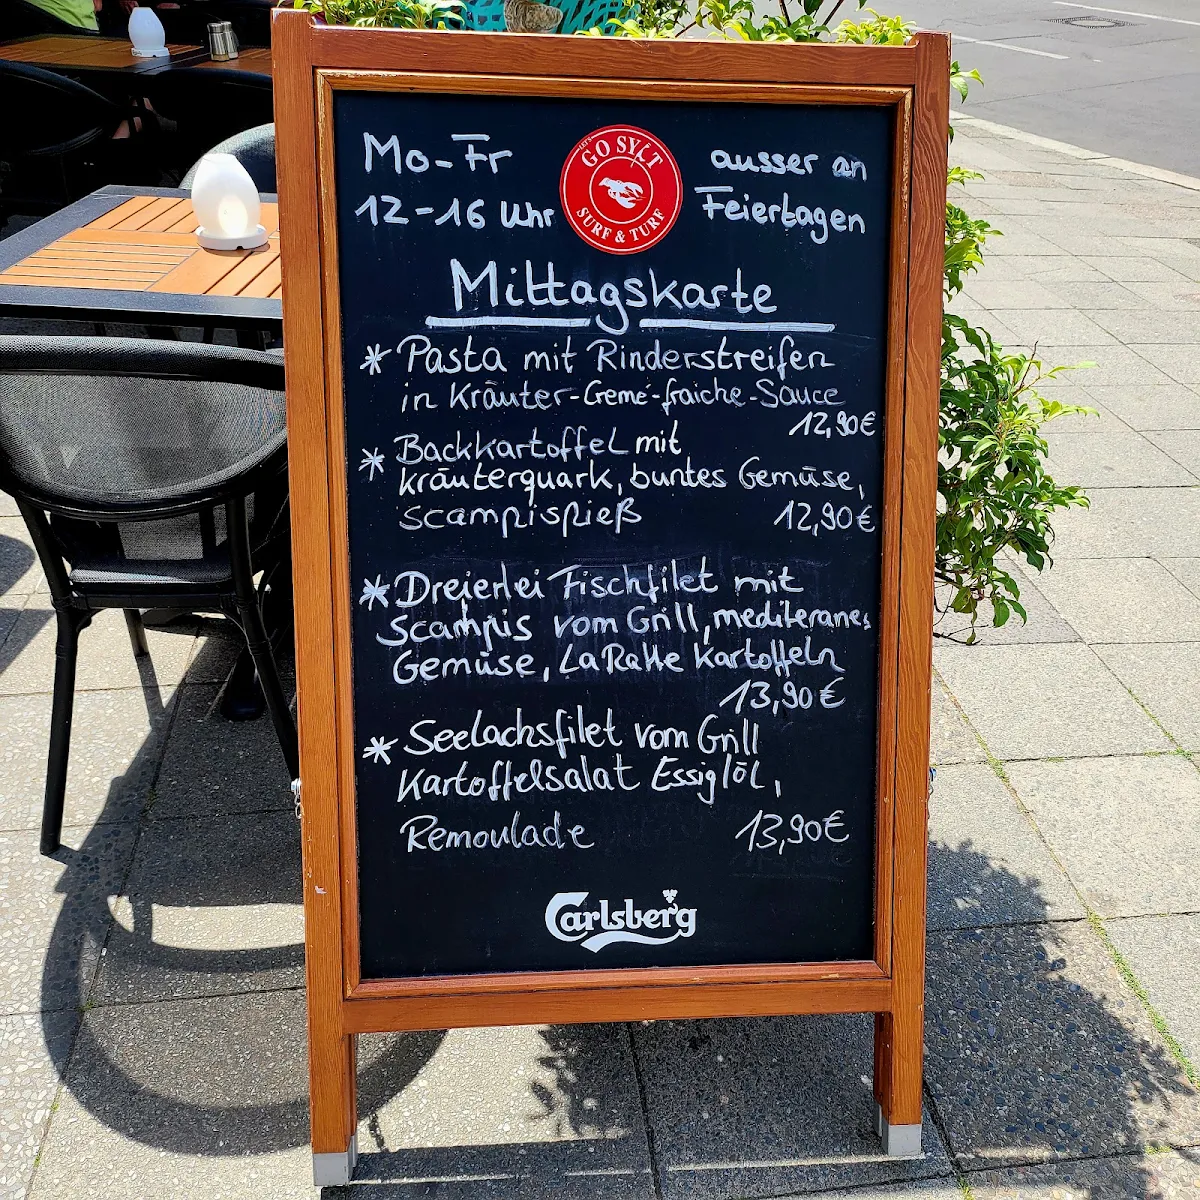 Mo-Fr
12-16 Uhr
LET'S
GO SYLT
SURF & TURF
ausser an
Feiertagen
Mittagskarte
* Pasta mit Rinderstreifen
in Kräuter-Cremé-fraiche-Sauce
12,90€
* Backkartoffel mit
kräuterquark, buntes Gemüse,
scampispieß 12,90€
* Dreierlei Fischfilet mit
Scampis vom Grill, mediteranes
Gemüse, La Ratte Kartoffeln
13,90€
* Seelachsfilet vom Grill
Kartoffelsalat Essig/öl,
Remoulade 13,90€
Carlsberg